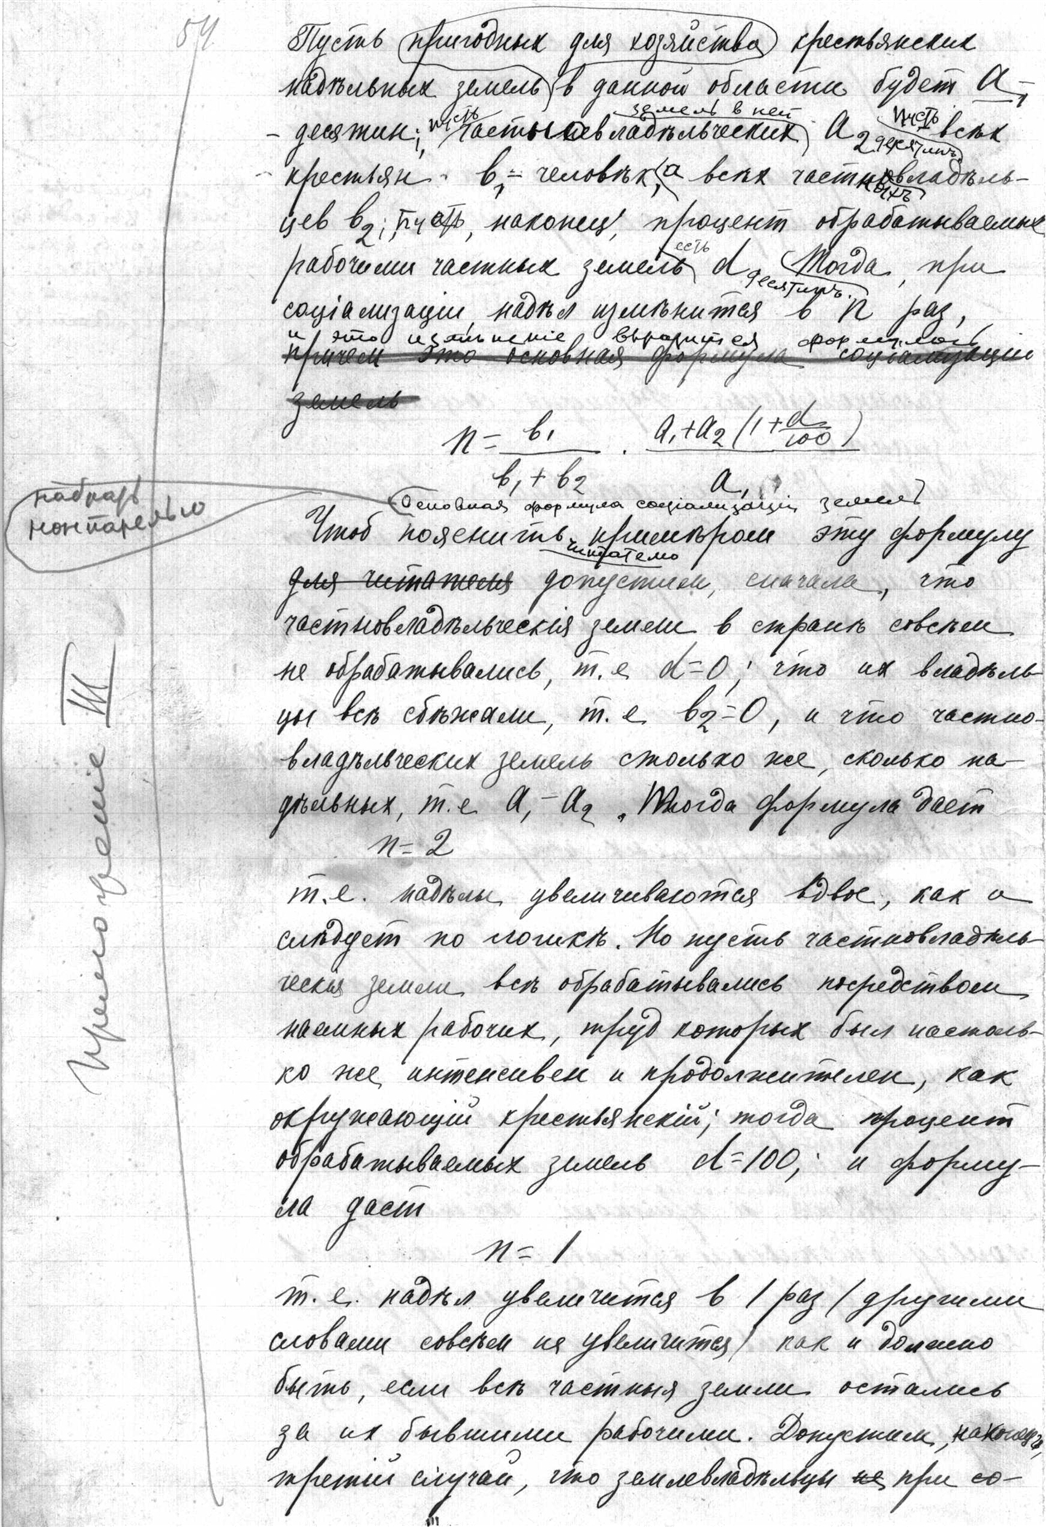 54
Пусть пригодных для хозяйства крестьянских
надѣльных земель в данной области будет a₁
десятин; пусть частновладѣльческих земель в ней a₂ десятинъ, пусть всѣх
крестьян b₁ человѣк, а всѣх частновладѣль-
цев b₂; пусть, наконец, процент обрабатываемых
рабочими частных земель есть d десятинъ. Тогда, при
соціализаціи, надѣл измѣнится в n раз,
и это измѣненіе выразится формулой
причем это основная формула соціализаціи
земель
n = b₁ / (b₁ + b₂) · (a₁ + a₂ (1 + d/100)) / a₁
Основная формула соціализаціи земель
набрать
нонпарелью
Чтоб пояснить примѣром эту формулу
читателю
для читателя допустим, сначала, что
частновладѣльческія земли в странѣ совсѣм
не обрабатывались, т.е d=0; что их владѣль-
цы всѣ сбѣжали, т.е b₂=0, и что частно-
владѣльческих земель столько же, сколько на-
дѣльных, т.е a₁=a₂. Тогда формула дает
n=2
т.е. надѣлы увеличиваются вдвое, как и
слѣдует по логикѣ. Но пусть частновладѣль-
ческія земли всѣ обрабатывались посредством
наемных рабочих, труд которых был настоль-
ко же интенсивен и продолжителен, как
окружающій крестьянскій; тогда процент
обрабатываемых земель d=100; и форму-
ла даст
n=1
т.е. надѣл увеличится в 1 раз (другими
словами совсѣм не увеличится) как и должно
быть, если всѣ частныя земли остались
за их бывшими рабочими. Допустим, наконецъ,
третій случай, что землевладѣльцы не при со-
Приложеніе III